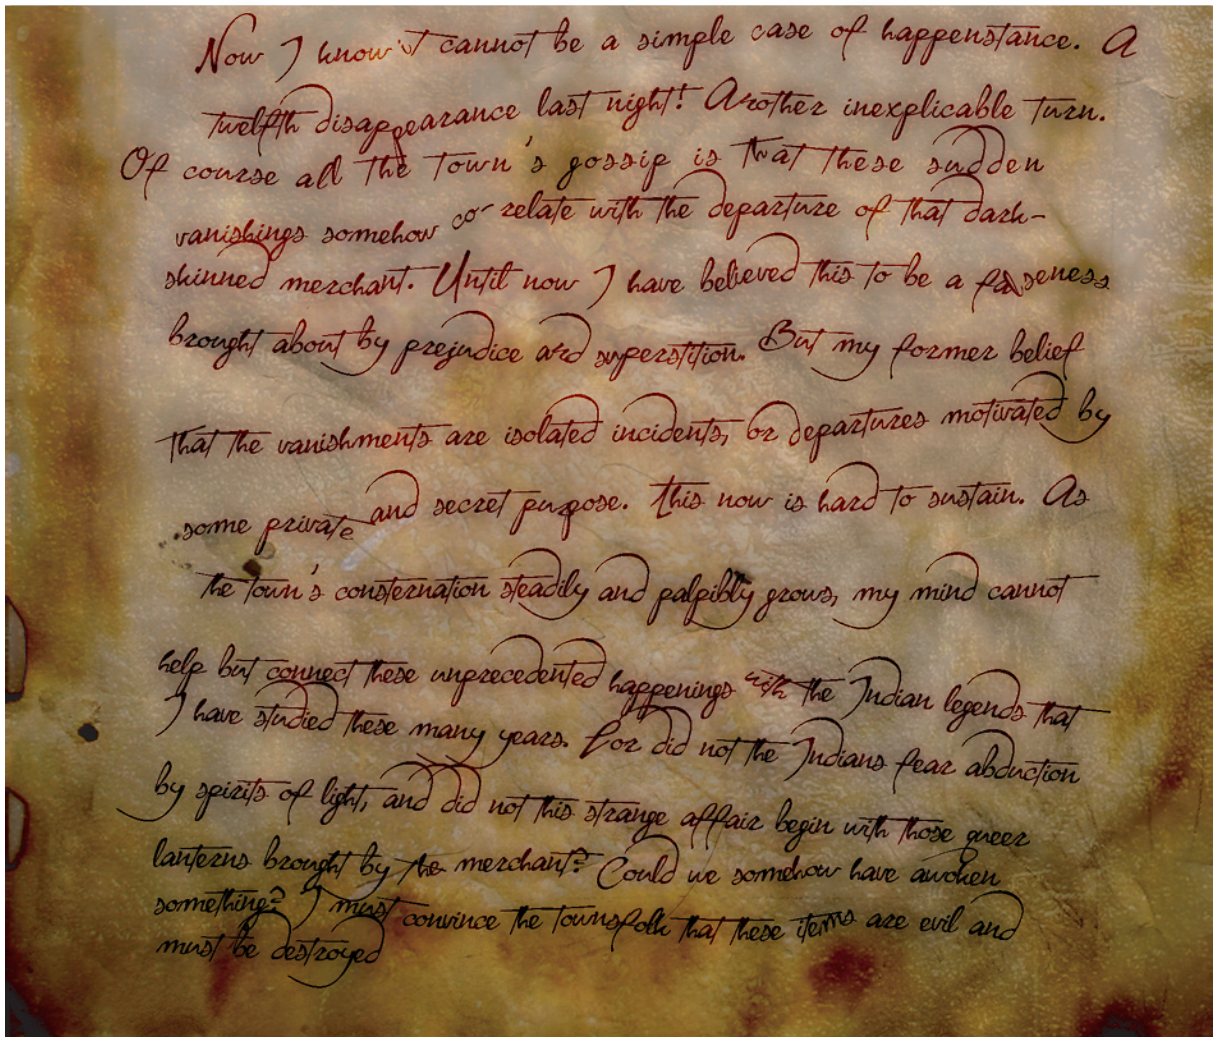 Now I know it cannot be a simple case of happenstance. A
twelfth disappearance last night! Another inexplicable turn.
Of course all the town's gossip is that these sudden
vanishings somehow co-relate with the departure of that dark-
skinned merchant. Until now I have believed this to be a falseness
brought about by prejudice and superstition. But my former belief
that the vanishments are isolated incidents, or departures motivated by
some private and secret purpose. This now is hard to sustain. As
the town's consternation steadily and palpibly grows, my mind cannot
help but connect these unprecedented happenings with the Indian legends that
I have studied these many years. For did not the Indians fear abduction
by spirits of light, and did not this strange affair begin with those queer
lanterns brought by the merchant? Could we somehow have awoken
something? I must convince the townsfolk that these items are evil and
must be destroyed